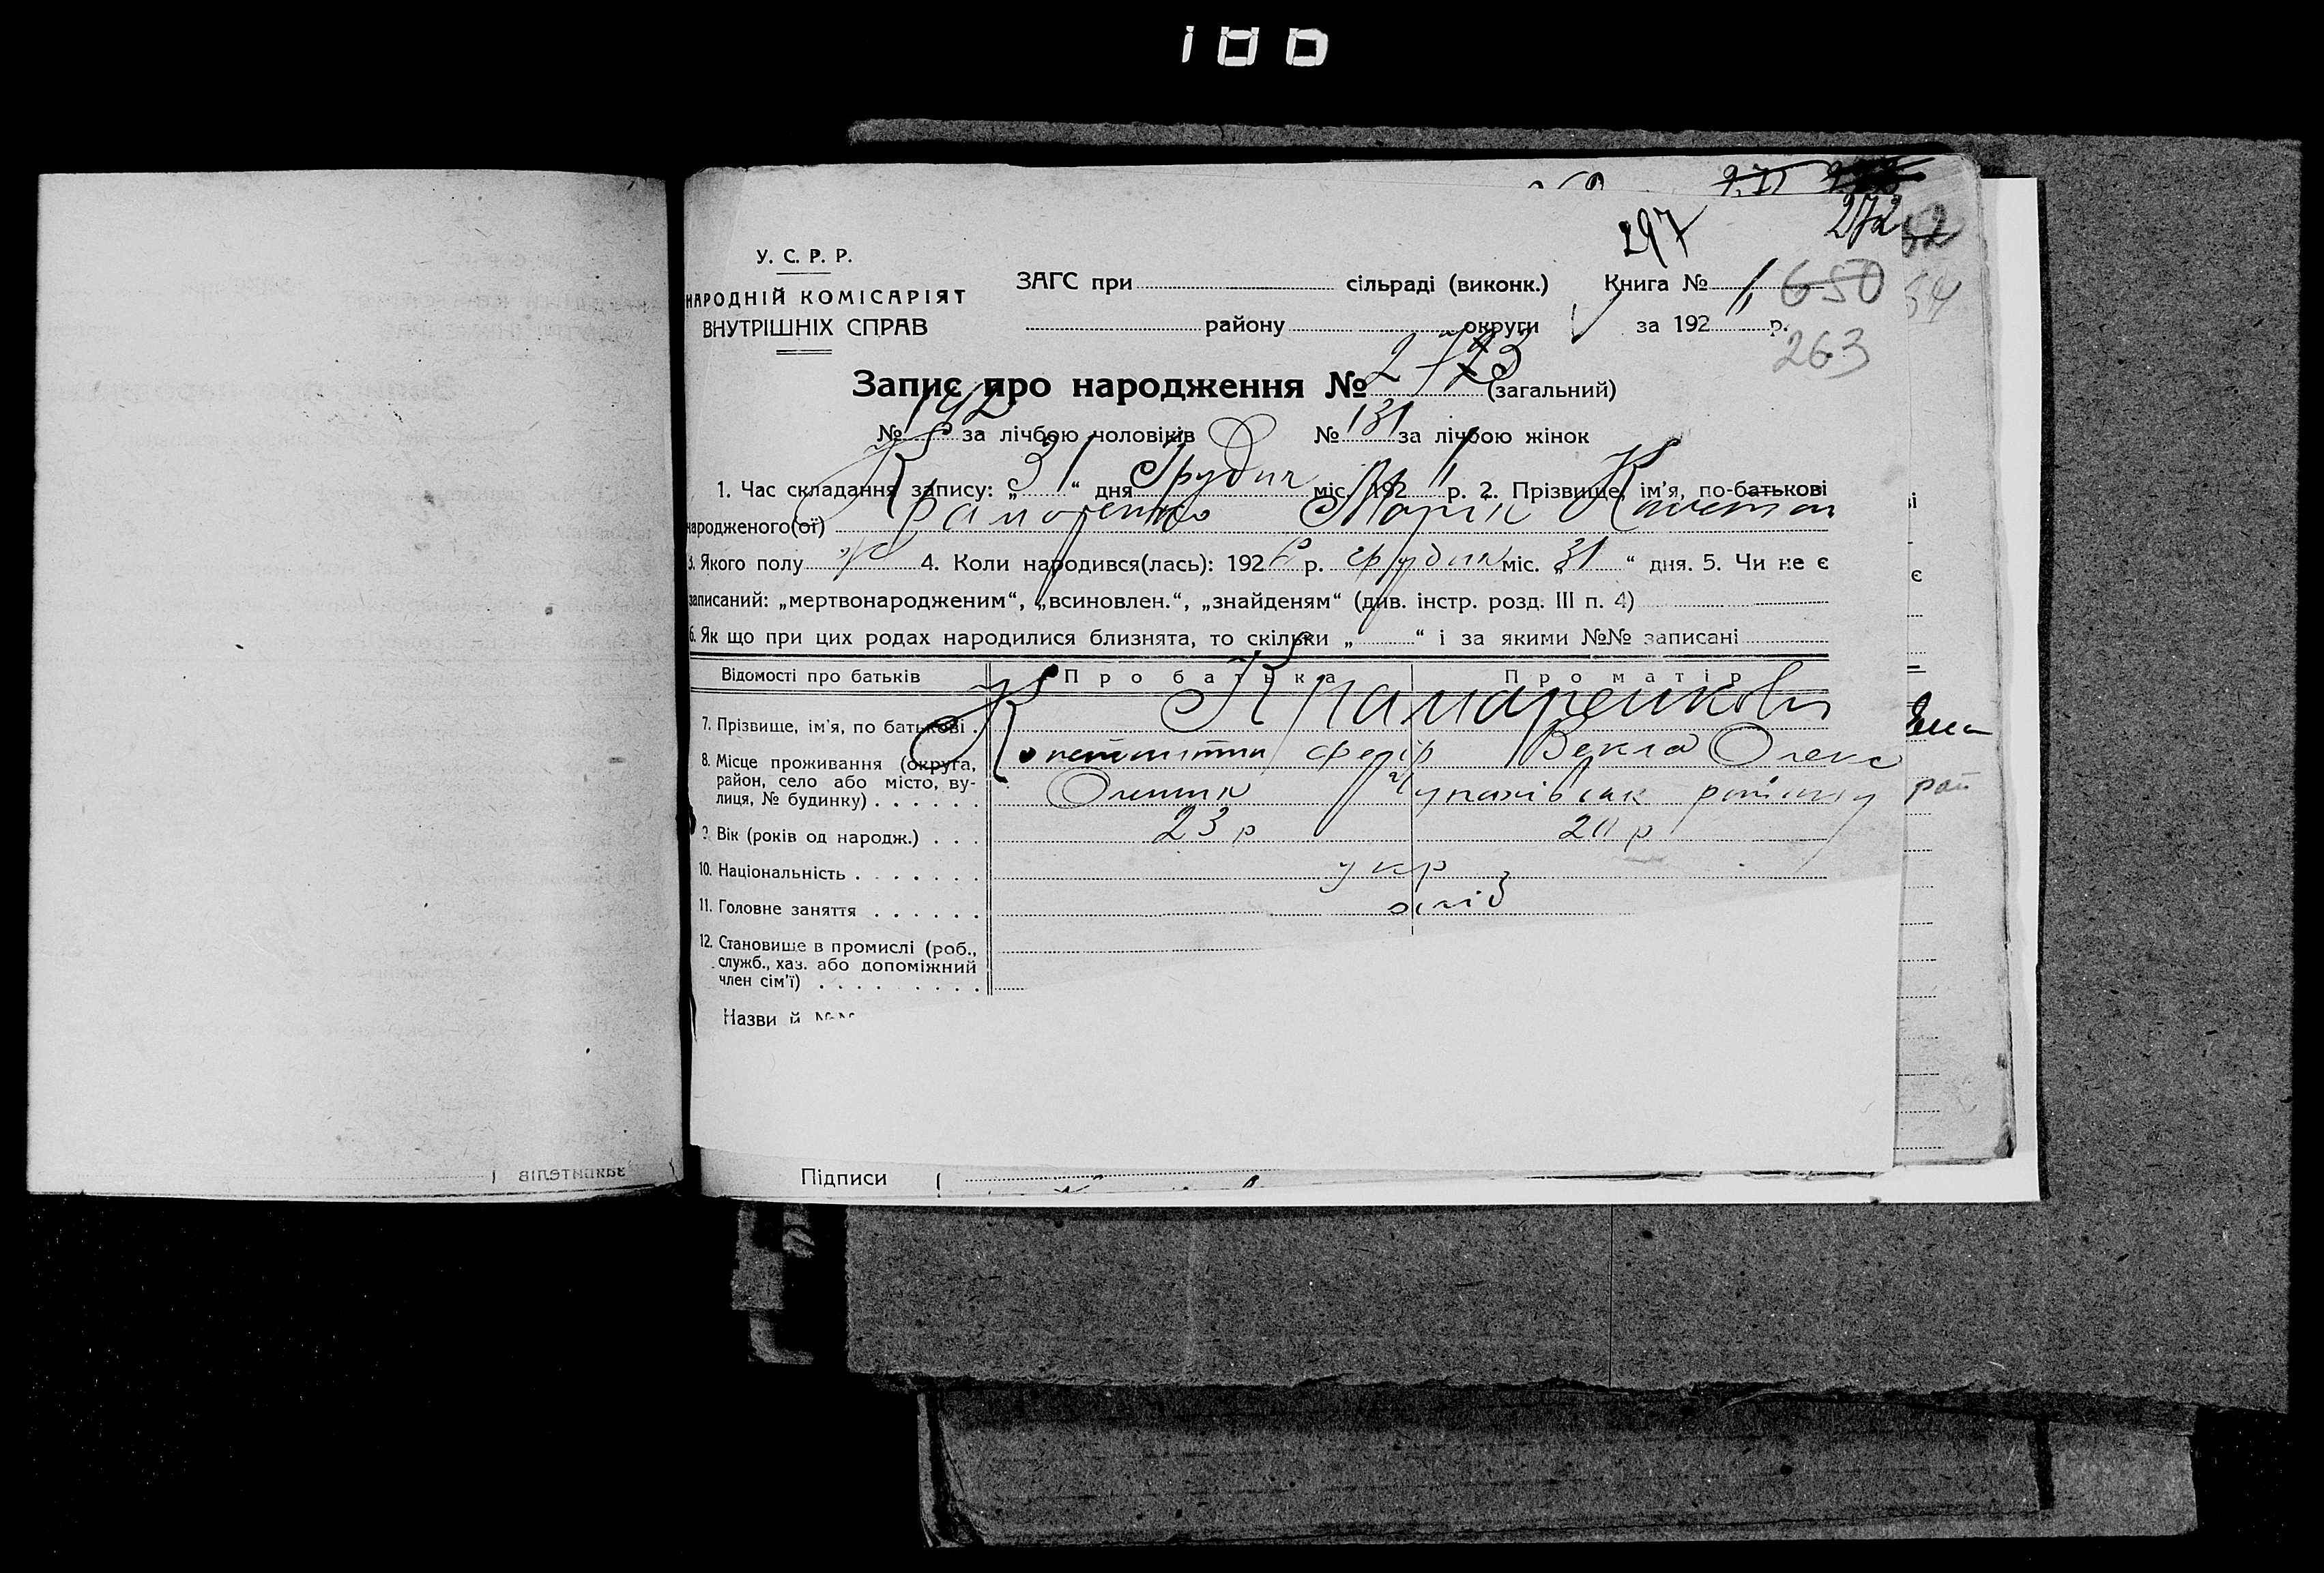 297
272
У. С. Р. Р.
НАРОДНІЙ КОМІСАРІЯТ
ВНУТРІШНІХ СПРАВ
ЗАГС при сільраді (виконк.) Книга № 1 650
району округи за 192 р.
263
54
Запис про народження № 273 (загальний)
№ 142 за лічбою чоловіків № 131 за лічбою жінок
1. Час складання запису: „31“ дня Грудня міс. 192 р. 2. Прізвище, ім'я, по-батькові
народженого(ої) Крамаренко Марія Констан
3. Якого полу ж 4. Коли народився(лась): 1926 р. грудня міс. „31“ дня. 5. Чи не є
записаний: „мертвонародженим“, „всиновлен.“, „знайденям“ (див. інстр. розд. III п. 4)
6. Як що при цих родах народилися близнята, то скільки „ “ і за якими №№ записані
Відомості про батьків Про батька Про матір
7. Прізвище, ім'я, по батькові . Крамаренкови
Константин Федір Векла Олекс
8. Місце проживання (округа,
район, село або місто, ву-
лиця, № будинку) . . . . . .
району
9. Вік (років од народж.) . . . 23 р 20 р
10. Національність . . . . . . . укр
11. Головне заняття . . . . . .
12. Становище в промислі (роб.,
служб., хаз. або допоміжний
член сім'ї) . . . . . . . . .
Назви й №№
Підписи